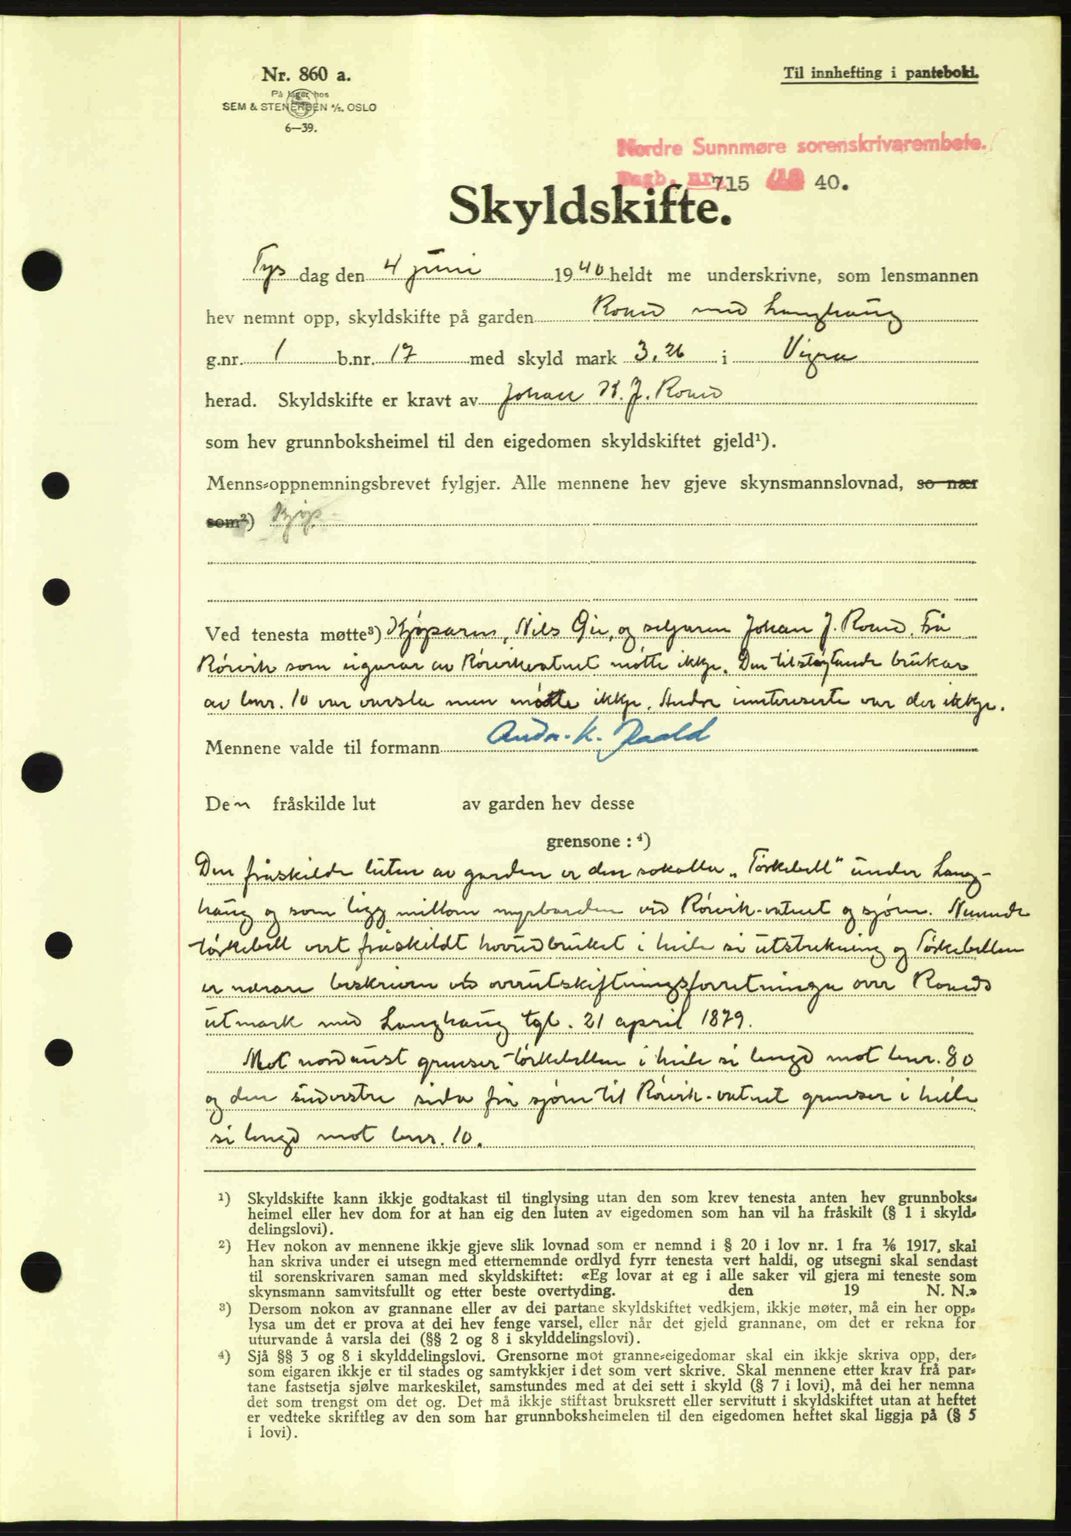 Nr. 860 a.
Til innhefting i pantebok i.
På lager hos
SEM & STENERSEN A/S. OSLO
6—39.
Nordre Sunnmøre sorenskrivarembete.
Dagb. nr. 715 / 19 40.
Skyldskifte.
Tys dag den 4 juni 1940 heldt me underskrivne, som lensmannen
hev nemnt opp, skyldskifte på garden Roald med Langhaug
g.nr. 1 b.nr. 17 med skyld mark 3,26 i Vigra
herad. Skyldskifte er kravt av Johan K. J. Roald
som hev grunnboksheimel til den eigedomen skyldskiftet gjeld¹).
Menns-oppnemningsbrevet fylgjer. Alle mennene hev gjeve skynsmannslovnad, so nær
som²)
Ved tenesta møtte³) Kjøparen, Nils Gju, og seljaren Johan J. Roald. Frå
Rörvik som eigarar av Rörvikvatnet møtte ikkje. Den tilstøytande brukar
av bnr. 10 var varsla men møtte ikkje. Andre interesserte var der ikkje.
Mennene valde til formann Andr. K. Roald
Den fråskilde lut av garden hev desse
grensone : ⁴)
Den fråskilde luten av garden er den sokalla „Törkebell" under Lang-
haug og som ligg millom myrbarden ved Rörvik-vatnet og sjøen. Nemnde
törkebell vert fråskildt hovudbruket i heile si utstrekning og Törkebellen
er nærare beskriven ved overutskiftningsforretninga over Roalds
utmark med Langhaug tgl. 21 april 1879.
Mot nordaust grenser törkebellen i heile si lengd mot bnr. 80
og den sudvestre sida frå sjøen til Rörvik-vatnet grenser i heile
si lengd mot bnr. 10.
¹) Skyldskifte kann ikkje godtakast til tinglysing utan den som krev tenesta anten hev grunnboks-
heimel eller hev dom for at han eig den luten av eigedomen som han vil ha fråskilt (§ 1 i skyld-
delingslovi).
²) Hev nokon av mennene ikkje gjeve slik lovnad som er nemnd i § 20 i lov nr. 1 fra ⅙ 1917, skal
han skriva under ei utsegn med etternemnde ordlyd fyrr tenesta vert haldi, og utsegni skal sendast
til sorenskrivaren saman med skyldskiftet: «Eg lovar at eg i alle saker vil gjera mi teneste som
skynsmann samvitsfullt og etter beste overtyding. den 19 N. N.»
³) Dersom nokon av grannane eller av dei partane skyldskiftet vedkjem, ikkje møter, må ein her opp-
lysa um det er prova at dei hev fenge varsel, eller når det gjeld grannane, om det er rekna for
uturvande å varsla dei (§§ 2 og 8 i skylddelingslovi).
⁴) Sjå §§ 3 og 8 i skylddelingslovi. Grensorne mot granne-eigedomar skal ein ikkje skriva opp, der-
som eigaren ikkje er til stades og samtykkjer i det som vert skrive. Skal mennene etter krav frå par-
tane fastsetja sjølve markeskilet, samstundes med at dei sett i skyld (§ 7 i lovi), må dei her nemna
det som trengst om det og. Det må ikkje stiftast bruksrett eller servitutt i skyldskiftet utan at heftet
er vedteke skriftleg av den som har grunnboksheimelen til den eigedomen heftet skal liggja på (§ 5
i lovi).